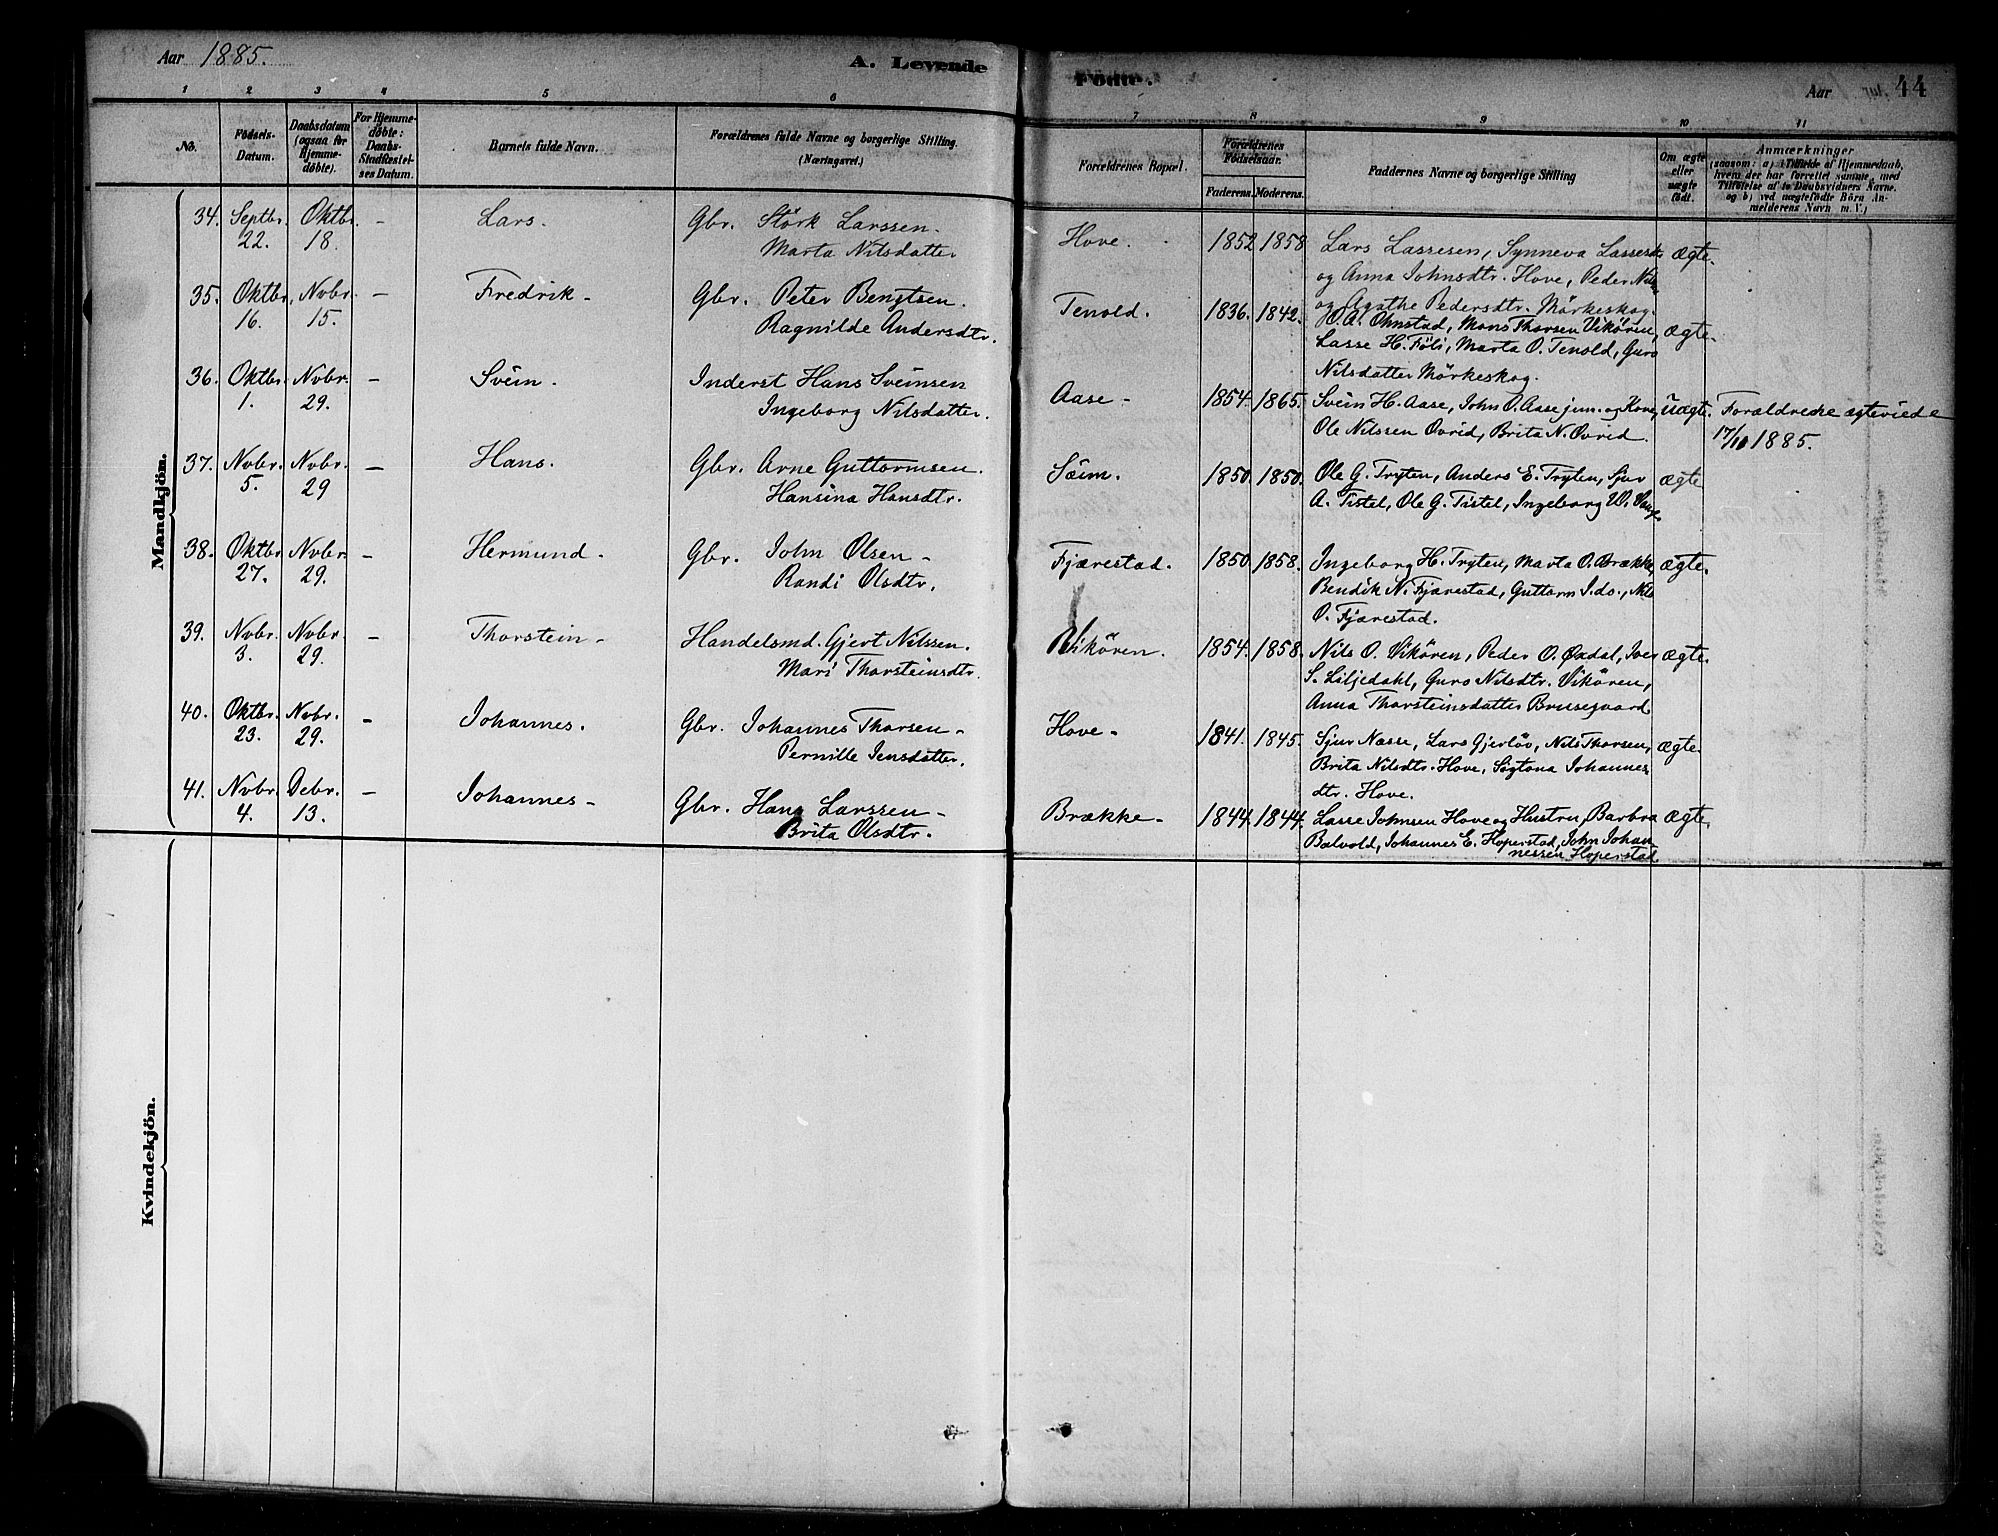 Aar 1885.
A. Levende
Fødte.
Aar
44
1 2 3 4 5 6 7 8 9 10 11
No.
Fødsels-Datum.
Daabsdatum (ogsaa for Hjemmedøbte).
For Hjemmedøbte: Daabs-Stadfæstelses Datum.
Barnets fulde Navn.
Forældrenes fulde Navne og borgerlige Stilling. (Næringsvei.)
Forældrenes Bopæl.
Forældrenes Fødselsaar.
Faderens. Moderens.
Faddernes Navne og borgerlige Stilling
Om ægte eller uægte født.
Anmærkninger
(saasom: a) i Tilfælde af Hjemmedaab, hvem der har forrettet samme, med Tilføielse af to Daabsvidners Navne, og b) ved uægtefødte Børn Anmelderens Navn m. V.)
Mandkjön.
34. Septbr. 22. Oktbr. 18. - Lars. Gbr. Störk Larssen. Marta Nilsdatter Hove. 1852 1858 Lars Lassesen, Synneva Lassesdtr. ægte.
og Anna Johnsdtr. Hove, Peder Nilss.
og Agathe Pedersdtr. Mörkeskog.
35. Oktbr. 16. Nvbr. 15. - Fredrik - Gbr. Peter Bengtsen. Ragnilde Andersdtr. Tenold. 1836. 1842. O. A. Ohnstad, Mons Thorsen Vikören, ægte.
Lasse H. Föli, Marta O. Tenold, Guro
Nilsdatter Mörkeskog.
36. Oktbr. 1. Nvbr. 29. - Svein. Inderst Hans Sveinsen Ingeborg Nilsdatter. Aase - 1854. 1865. Svein H. Aase, John O. Aase jun. og Kone, uægte. Forældrene ægteviede
Ole Nilssen Ovrid, Brita N. Ovrid. 17/10 1885.
37. Nvbr. 5. Nvbr. 29 - Hans. Gbr. Arne Guttormsen. Hansina Hansdtr. Söim. 1850. 1850. Ole G. Tryten, Anders E. Tryten, Sjur ægte
A. Tistel, Ole G. Tistel, Ingeborg
38. Oktbr 27. Nvbr. 29. - Hermund. Gbr. John Olsen - Randi Olsdtr. Fjærestad. 1850 1858. Ingeborg H. Tryten, Marta O. Brække, ægte.
Bendik N. Fjærestad, Guttorm J. do., Nils
O. Fjærestad.
39. Nvbr. 3. Nvbr. 29. - Thorstein - Handelsmd. Gjert Nilssen. Mari Thorsteinsdtr. Vikören. 1854. 1858. Nils O. Vikören, Peder O. Öxdal, Iver ægte.
S. Liljedahl, Guro Nilsdtr. Vikören,
Anna Thorsteinsdatter Brusegaard.
40. Oktbr. 23. Nvbr. 29. - Johannes. Gbr. Johannes Thorsen - Pernille Jensdatter. Hove - 1841. 1845. Sjur Næsse, Lars Gjerlöv, Nils Thorsen, ægte.
Brita Nilsdtr. Hove, Sögtona Johannes
dtr. Hove.
41. Nvbr. 4. Debr. 13. - Johannes - Gbr. Hans Larssen - Brita Olsdtr. Brække - 1844. 1844. Lasse Johnsen Hove og Hustru, Barbra ægte.
Bolvold, Johannes E. Hoperstad, John Johan
nessen Hoperstad
Kvindekjön.